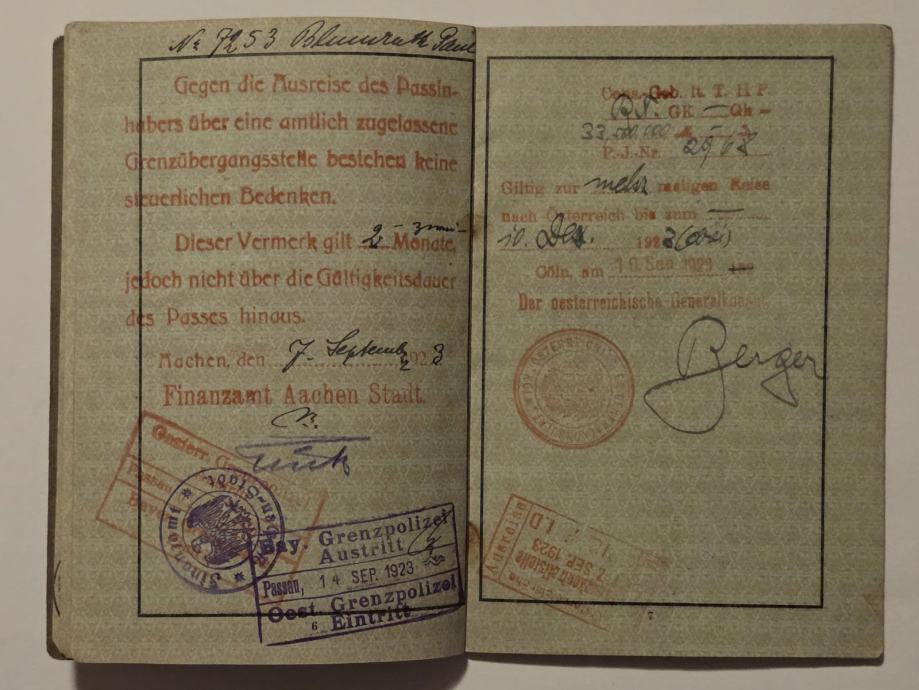 № 7253 Blumrath Paul
Gegen die Ausreise des Passin-
habers über eine amtlich zugelassene
Grenzübergangsstelle bestehen keine
steuerlichen Bedenken.
Dieser Vermerk gilt 2 - zwei - Monate,
jedoch nicht über die Gültigkeitsdauer
des Passes hinaus.
Aachen, den 7. September 1923
Finanzamt Aachen Stadt.
Oesterr.
Passau
Finanzamt Aachen-Stadt
Bay. Grenzpolizei
Austritt
Passau, 14 SEP. 1923
Oest. Grenzpolizei
Eintritt
6
Cons. Geb. lt. T. II P.
GK — Qh —
33.500.000
P.-J.-Nr. 2968
Giltig zur mehr maligen Reise
nach Österreich bis zum —
10. Dez. 1923 (drei)
Cöln, am 10 Sep 1923
Der oesterreichische Generalkonsul
Berger
Ausreise
SEP. 1923
7